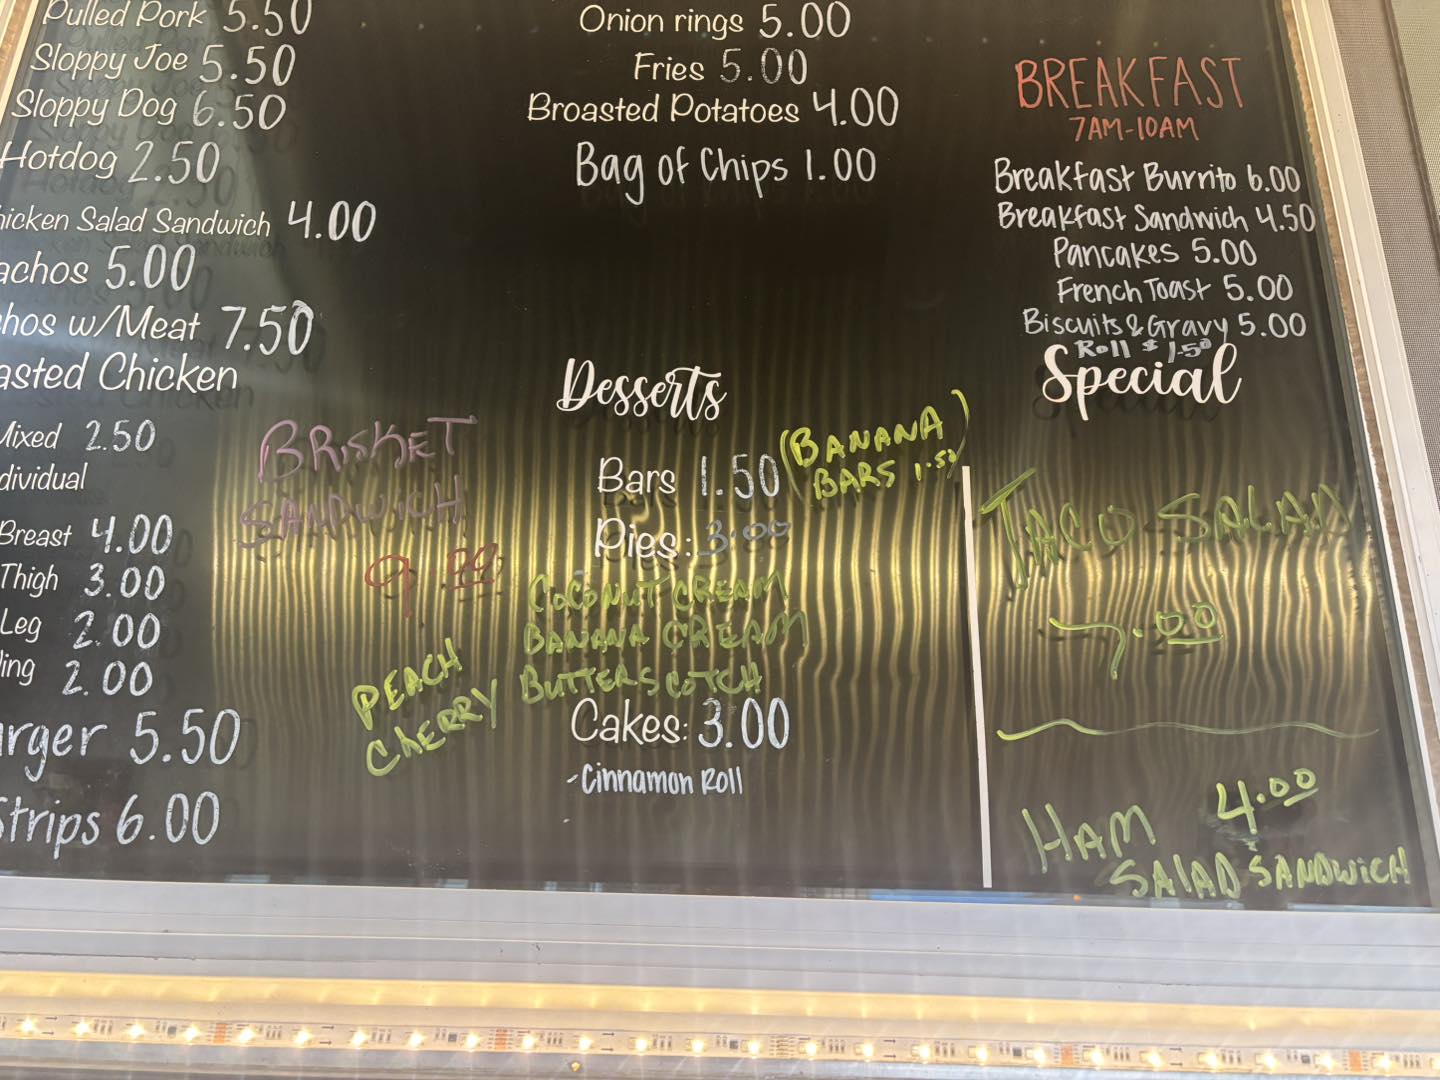 Pulled Pork 5.50
Sloppy Joe 5.50
Sloppy Dog 6.50
Hotdog 2.50
hicken Salad Sandwich 4.00
achos 5.00
hos w/Meat 7.50
asted Chicken
Mixed 2.50
dividual
Breast 4.00
Thigh 3.00
Leg 2.00
ing 2.00
urger 5.50
Strips 6.00
BRISKET
SANDWICH
9.00
Onion rings 5.00
Fries 5.00
Broasted Potatoes 4.00
Bag of Chips 1.00
Desserts
Bars 1.50 (BANANA
BARS 1.50)
Pies: 3.00
COCONUT CREAM
BANANA CREAM
BUTTERSCOTCH
PEACH
CHERRY
Cakes: 3.00
-Cinnamon Roll
BREAKFAST
7AM-10AM
Breakfast Burrito 6.00
Breakfast Sandwich 4.50
Pancakes 5.00
French Toast 5.00
Biscuits & Gravy 5.00
Roll $ 1.50
Special
TACO SALAD
7.00
HAM 4.00
SALAD SANDWICH